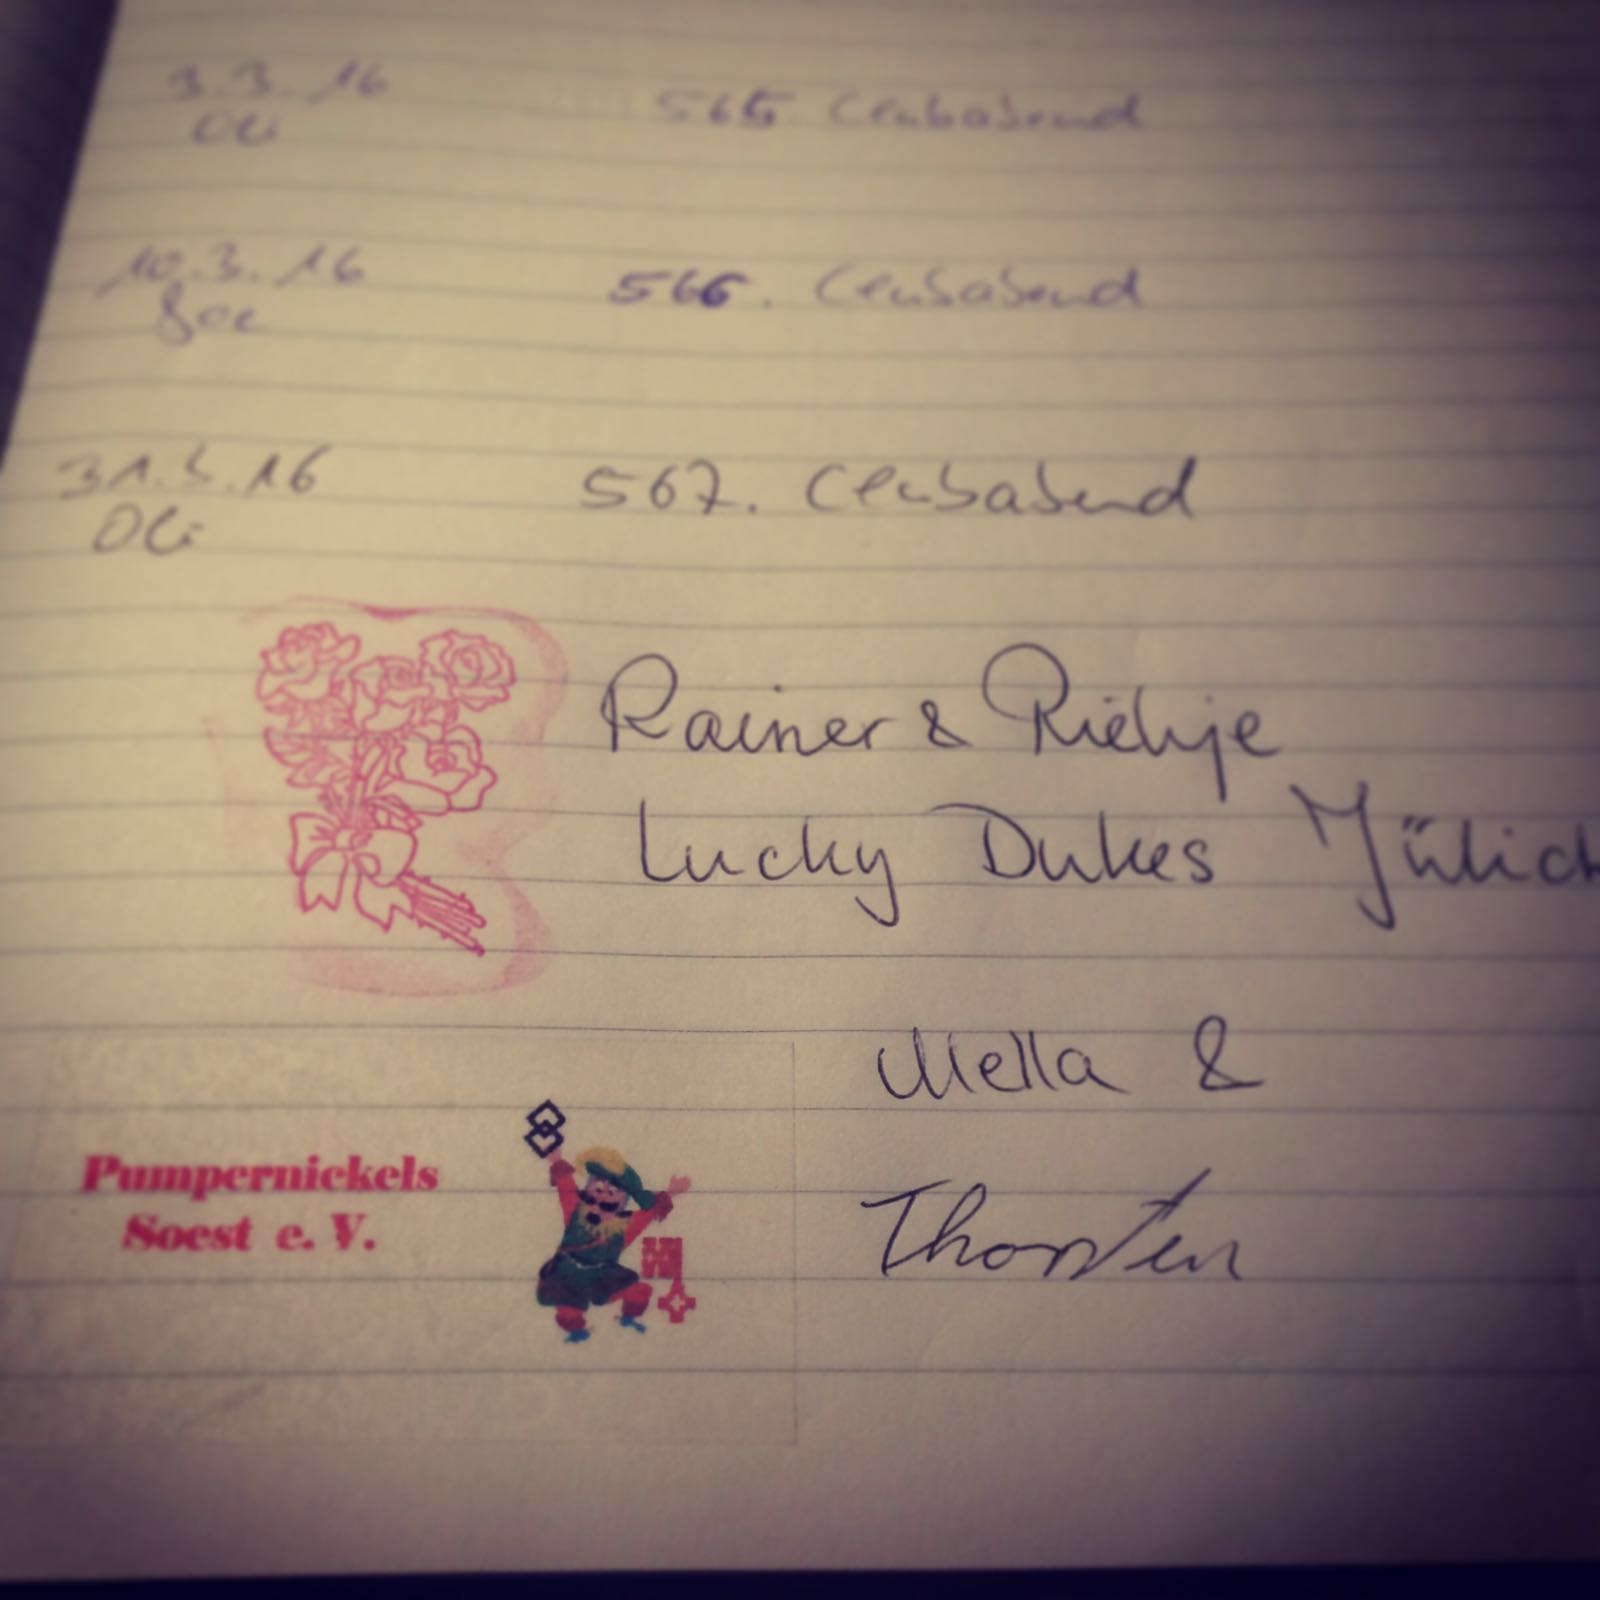 3.3.16 565. Clubabend
Oli
10.3.16 566. Clubabend
31.3.16 567. Clubabend
Oli
Rainer &
Lucky Dukes Jülich
Mella &
Pumpernickels
Soest e. V.
Thorsten